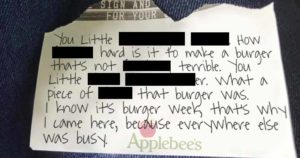 SIGN AND
FOR YOUR
You Little How
hard is it to make a burger
that's not terrible. You
Little er. What a
piece of that burger was.
I know it's burger week, that's why
I came here, because everywhere else
was busy.
Applebee's